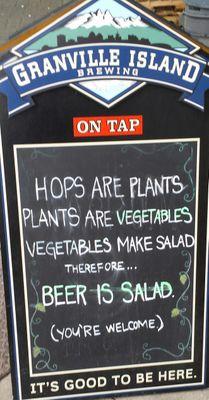 ON TAP
GRANVILLE ISLAND
BREWING
ON TAP
HOPS ARE PLANTS
PLANTS ARE VEGETABLES
VEGETABLES MAKE SALAD
THEREFORE...
BEER IS SALAD.
(YOU'RE WELCOME)
IT'S GOOD TO BE HERE.